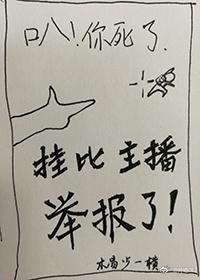 口八！你死了.
挂比主播
举报了！
木易步一横